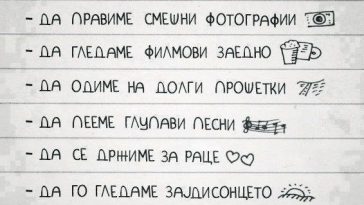 - ДА ПРАВИМЕ СМЕШНИ ФОТОГРАФИИ
- ДА ГЛЕДАМЕ ФИЛМОВИ ЗАЕДНО
- ДА ОДИМЕ НА ДОЛГИ ПРОШЕТКИ
- ДА ПЕЕМЕ ГЛУПАВИ ПЕСНИ
- ДА СЕ ДРЖИМЕ ЗА РАЦЕ
- ДА ГО ГЛЕДАМЕ ЗАЈДИСОНЦЕТО